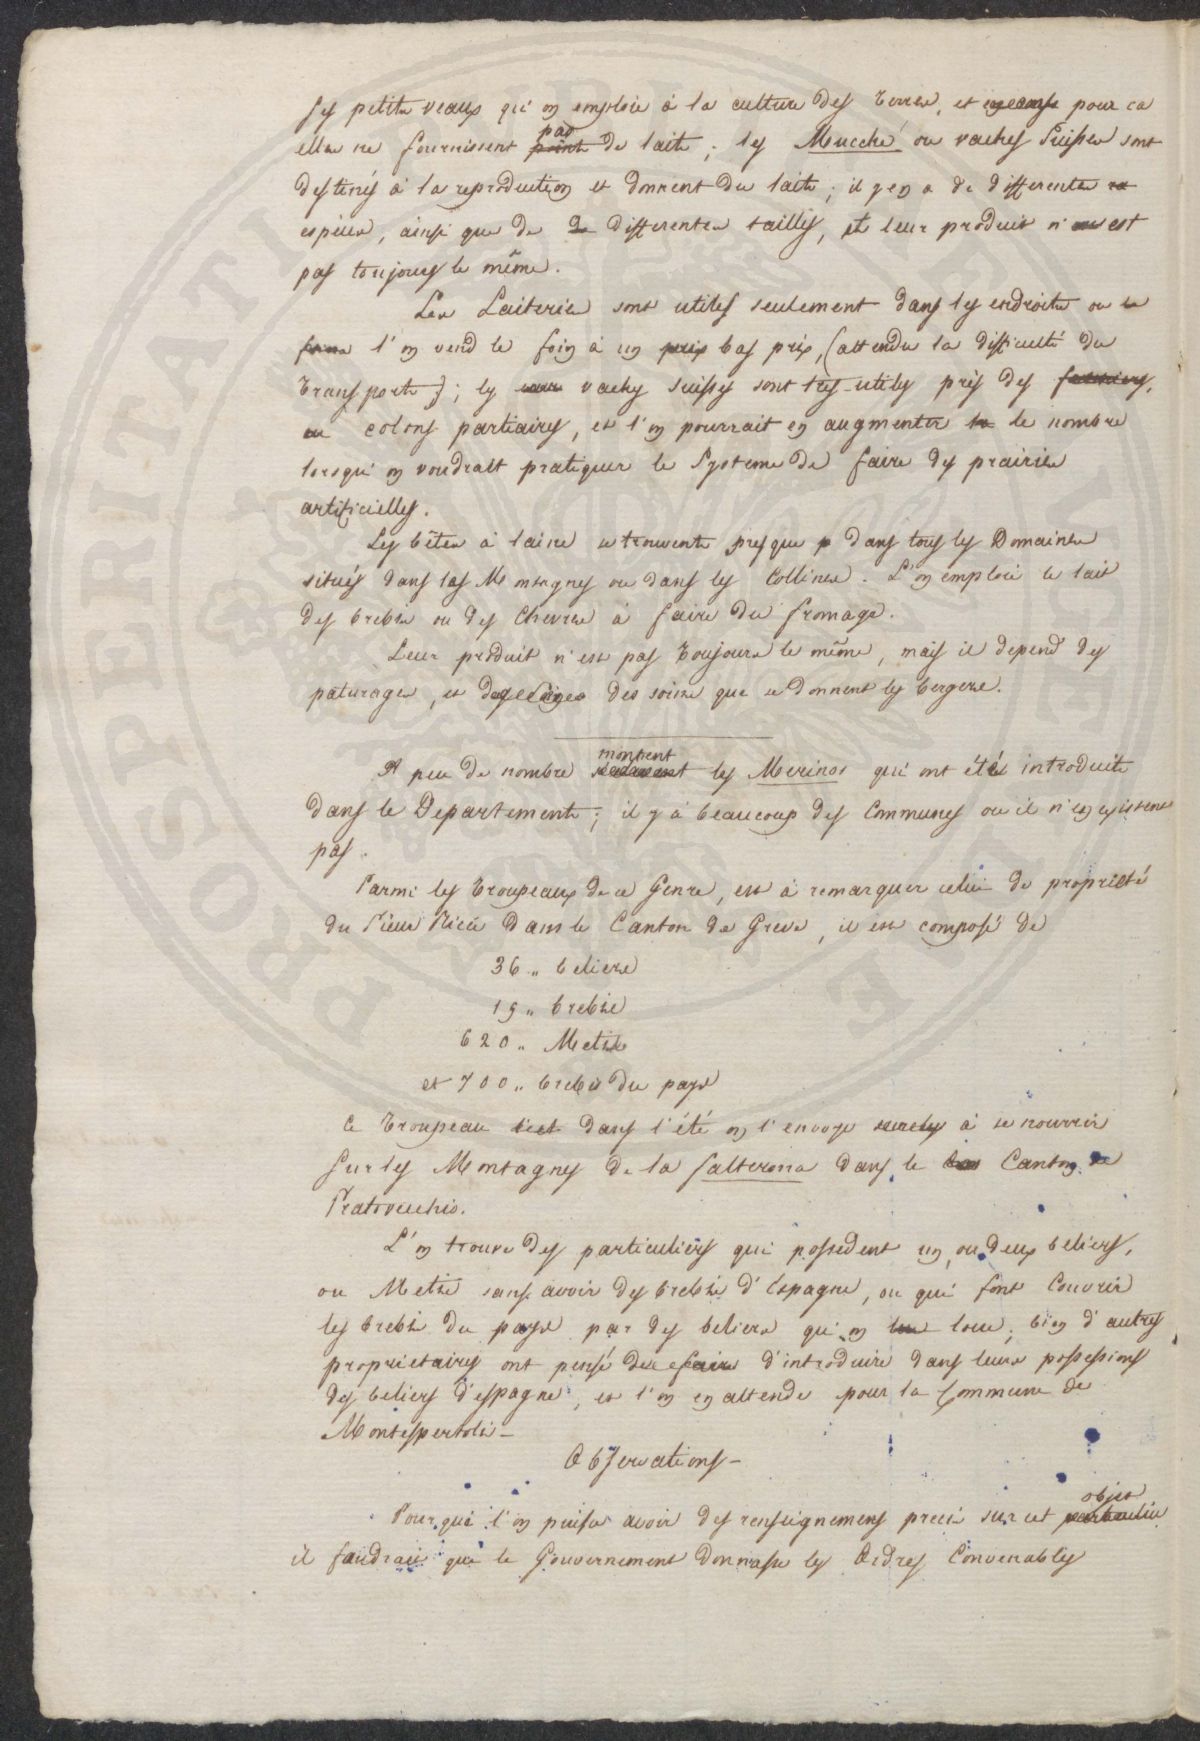 ses petits veaux qu'on emploie à la culture des terres, et pour ca
elles ne fournissent pas point de laits; les Mucche ou vaches Suisses sont
destinés à la reproduction et donnent du laits; il y en a de differentes
espèces, ainsi que de differentes tailles, et leur produit n'est
pas toujours le même.
Les Laiteries sont utiles seulement dans les endroits ou
l'on vend le foin à un prix bas prix, (attendu la difficulté du
transports); les vaches suisses sont très-utiles près des
colons partiaires, et l'on pourrait en augmenter le nombre
lorsqu'on voudrait pratiquer le Systeme de faire des prairies
artificielles.
Les bêtes à laine se trouvents presque dans tous les Domaines
situés dans les Montagnes ou dans les Collines. L'on emploie le lait
des brebis ou des Chevres à faire du fromage.
Leur produit n'est pas toujours le même, mais il depend des
paturages, et des soins que se donnent les bergers.
A peu de nombre montent les Merinos qui ont été introduits
dans le Departement; il y à beaucoup des Communes ou il n'en existent
pas.
Parmi les troupeaux de ce Genre, est à remarquer celui de proprieté
du Sieur Ricci dans le Canton de Greve, il est composé de
36 „ beliers
19 „ brebis
620 „ Metis
et 700 „ brebis du pays
Ce troupeau dans l'été on l'envoye à se nourrir
sur les Montagnes de la Falterona dans le Canton de
Pratovecchio.
L'on trouve des particuliers qui possedent un, ou deux beliers,
ou Metis sans avoir des brebis d'Espagne, ou qui font Couvrir
les brebis du pays par des beliers qu'on loue; bien d'autres
proprietaires ont pensé de faire d'introduire dans leurs possessions
des beliers d'espagne, et l'on en attende pour la Commune de
Montespertoli -
Observations -
Pour que l'on puisse avoir des renseignemens precis sur cet objet
il faudrait que le Gouvernement donnasse les Ordres Convenables
PROSPERITATI